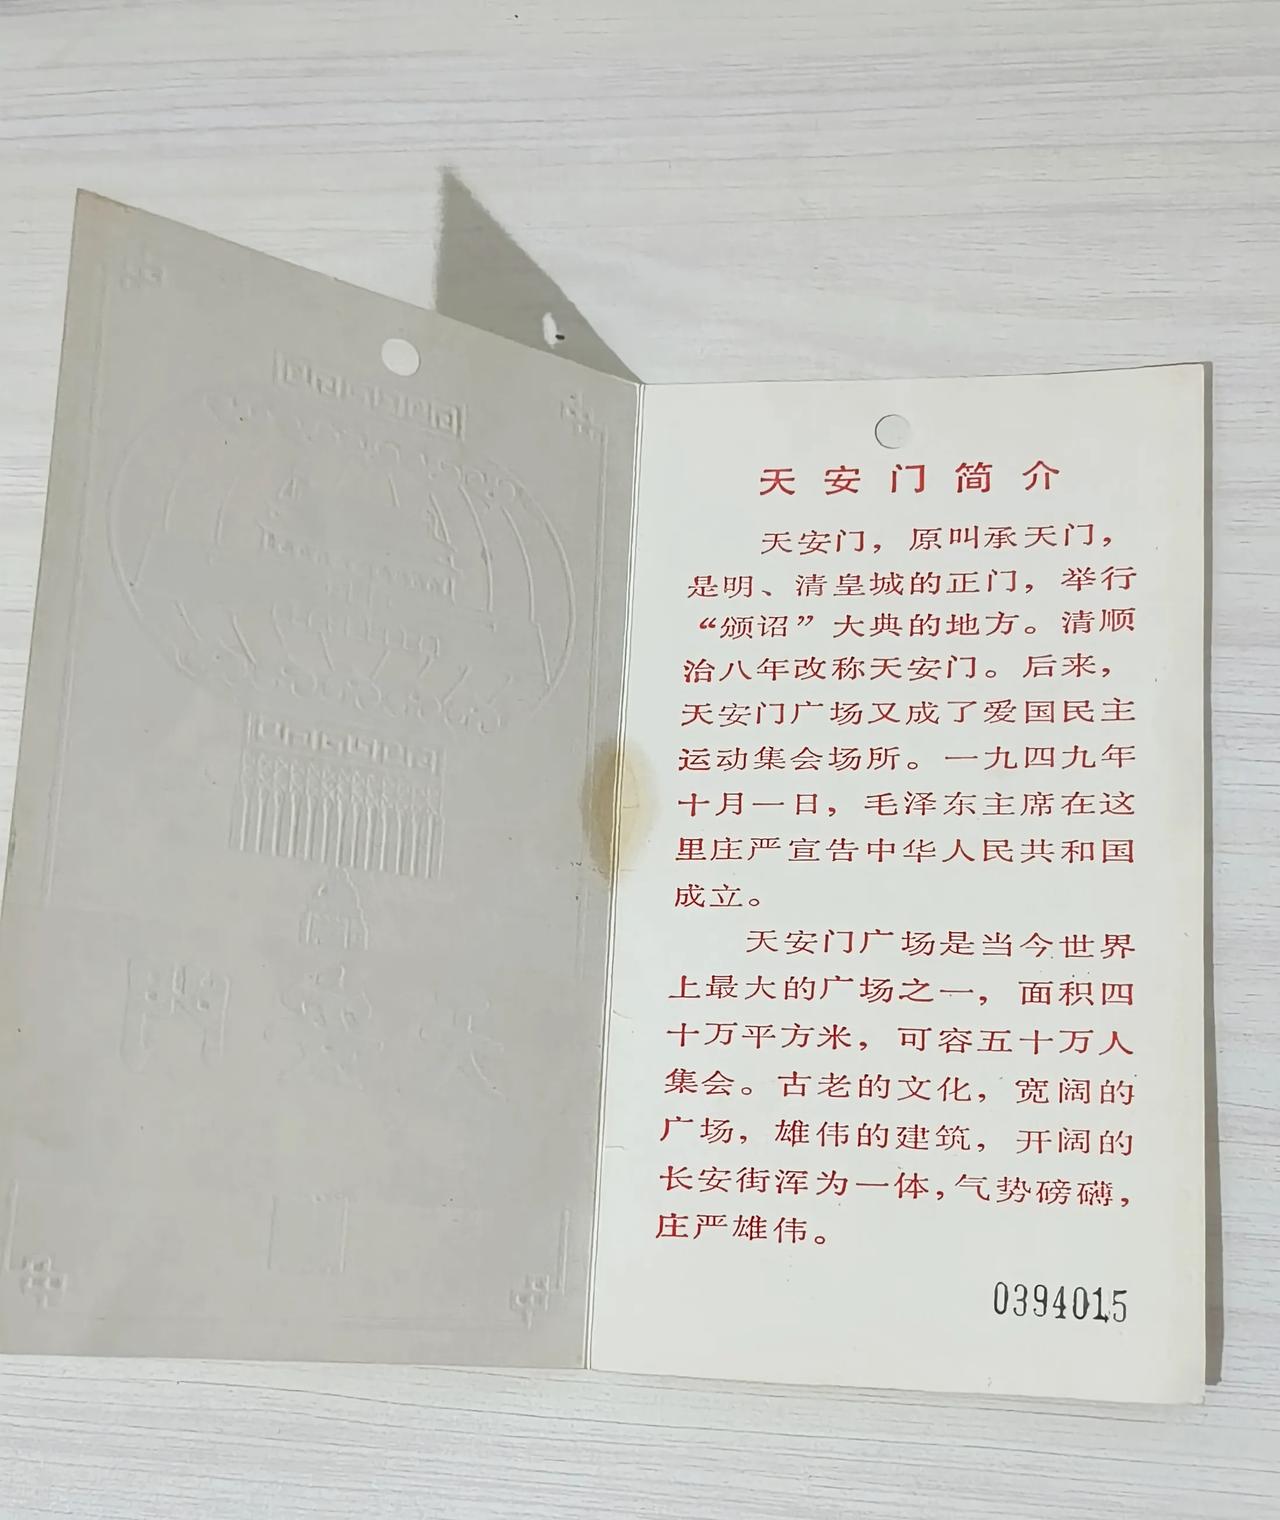 天安门简介
天安门，原叫承天门，
是明、清皇城的正门，举行
“颁诏”大典的地方。清顺
治八年改称天安门。后来，
天安门广场又成了爱国民主
运动集会场所。一九四九年
十月一日，毛泽东主席在这
里庄严宣告中华人民共和国
成立。
天安门广场是当今世界
上最大的广场之一，面积四
十万平方米，可容五十万人
集会。古老的文化，宽阔的
广场，雄伟的建筑，开阔的
长安街浑为一体，气势磅礴，
庄严雄伟。
0394015